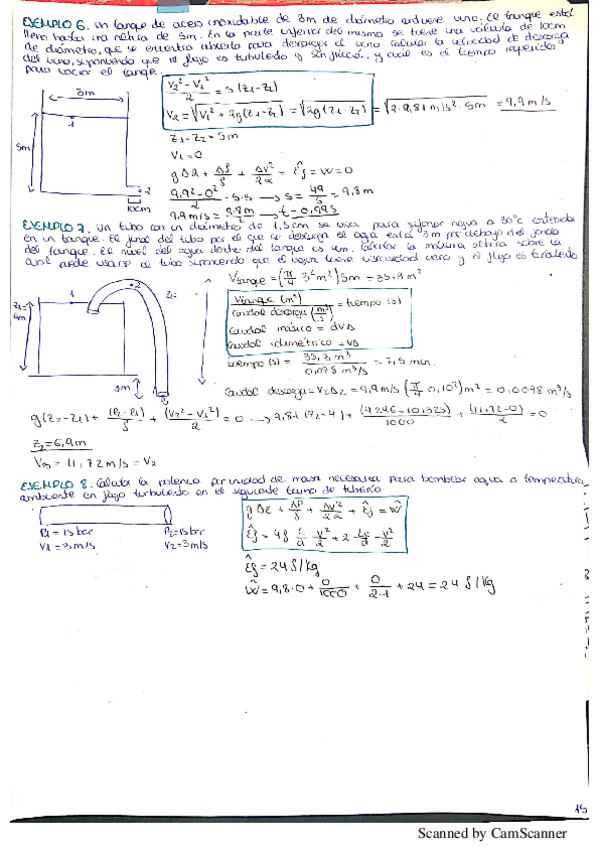 EJEMPLO 6. Un tanque de acero inoxidable de 3m de diámetro contiene vino. El tanque está
lleno hasta una altura de 5m. En la parte inferior del mismo se tiene una válvula de 10cm
de diámetro, que se encuentra abierta para descargar el vino. Calcular la velocidad de descarga
del vino, suponiendo que el flujo es turbulento y sin fricción, y cual es el tiempo requerido
para vaciar el tanque.
3m
1
5m
2
10cm
V₂² - V₁² / 2 = g (z₁-z₂)
V₂ = √V₁² + 2g(z₁-z₂) = √2g(z₁-z₂) = √2·9,81 m/s² · 5m = 9,9 m/s
z₁-z₂ = 5m
V₁ = 0
gΔz + ΔP/ρ + ΔV²/2α + Êf = W = 0
9,9² - 0² / 2 = 5·s → s = 49/5 = 9,8m
9,9 m/s = 9,8m/t → t = 0,99s
EJEMPLO 7. Un tubo con un diámetro de 1,5cm se usa para sifonar agua a 30°C contenida
en un tanque. El final del tubo por el que se descarga el agua está 3m por debajo del fondo
del tanque. El nivel del agua dentro del tanque es 4m. Calcular la máxima altura sobre la
cual puede usarse el tubo suponiendo que el agua tiene viscosidad cero y el flujo es turbulento.
1
2
z₂=
z₁=
4m
3m
3
Vtanque = (π/4 · 3² m²) 5m = 35,3 m³
Vtanque (m³) / Caudal descarga (m³/s) = tiempo (s)
Caudal másico = ρVA
Caudal volumétrico = VA
tiempo (s) = 35,3 m³ / 0,078 m³/s = 7,5 min.
Caudal descarga = V₂A₂ = 9,9 m/s (π/4 0,10²) m² = 0,0098 m³/s
g(z₂-z₁) + (P₂-P₁)/ρ + (V₂²-V₁²)/2 = 0 → 9,81 (z₂-4) + (4246-101325)/1000 + (11,72-0)/2 = 0
z₂ = 6,9m
V₃ = 11,72 m/s = V₂
EJEMPLO 8. Calcula la potencia por unidad de masa necesaria para bombear agua a temperatura
ambiente en flujo turbulento en el siguiente tramo de tubería
P₁ = 1,5 bar
V₁ = 3m/s
P₂ = 1,5 bar
V₂ = 3m/s
gΔz + ΔP/ρ + ΔV²/2α + Êf = Ŵ
Êf = 4f L/d V²/2 + 2 Le/d V²/2
Êf = 24 J/kg
Ŵ = 9,8·0 + 0/1000 + 0/2·1 + 24 = 24 J/kg
15
Scanned by CamScanner